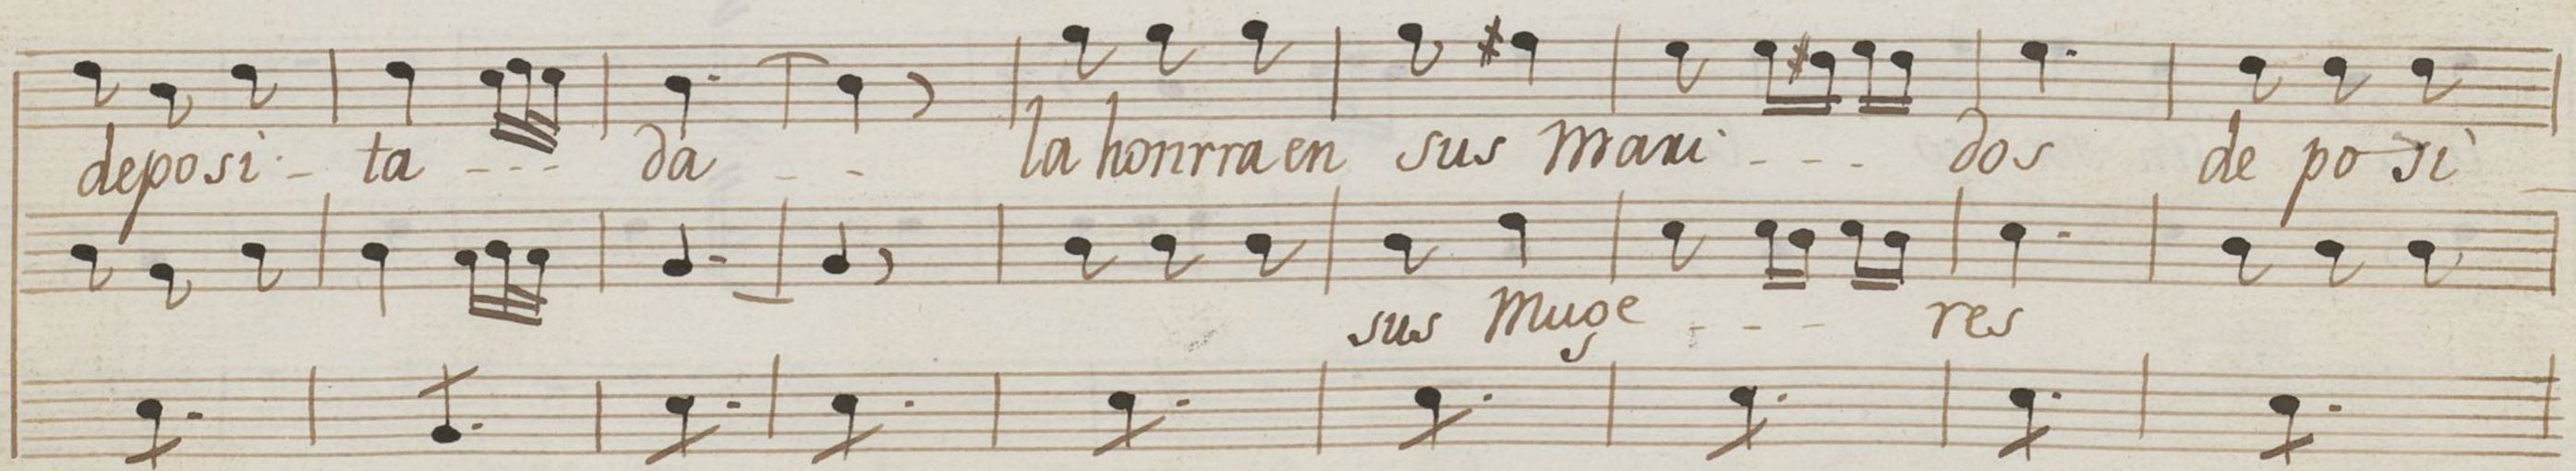 deposi - ta - - - da - - la honrra en sus Mari - - - dos de po si
sus Muge - - - res